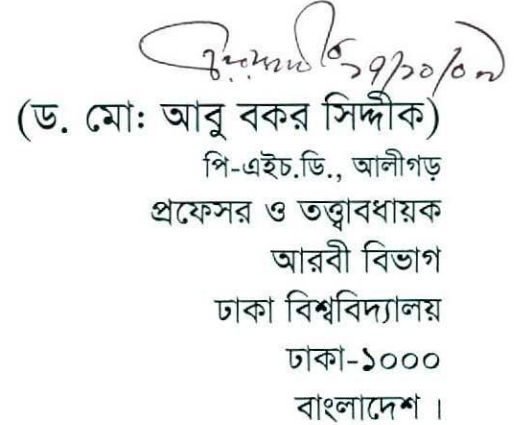 (ড. মো: আবু বকর সিদ্দীক)
পি-এইচ.ডি., আলীগড়
প্রফেসর ও তত্ত্বাবধায়ক
আরবী বিভাগ
ঢাকা বিশ্ববিদ্যালয়
ঢাকা-১০০০
বাংলাদেশ ।